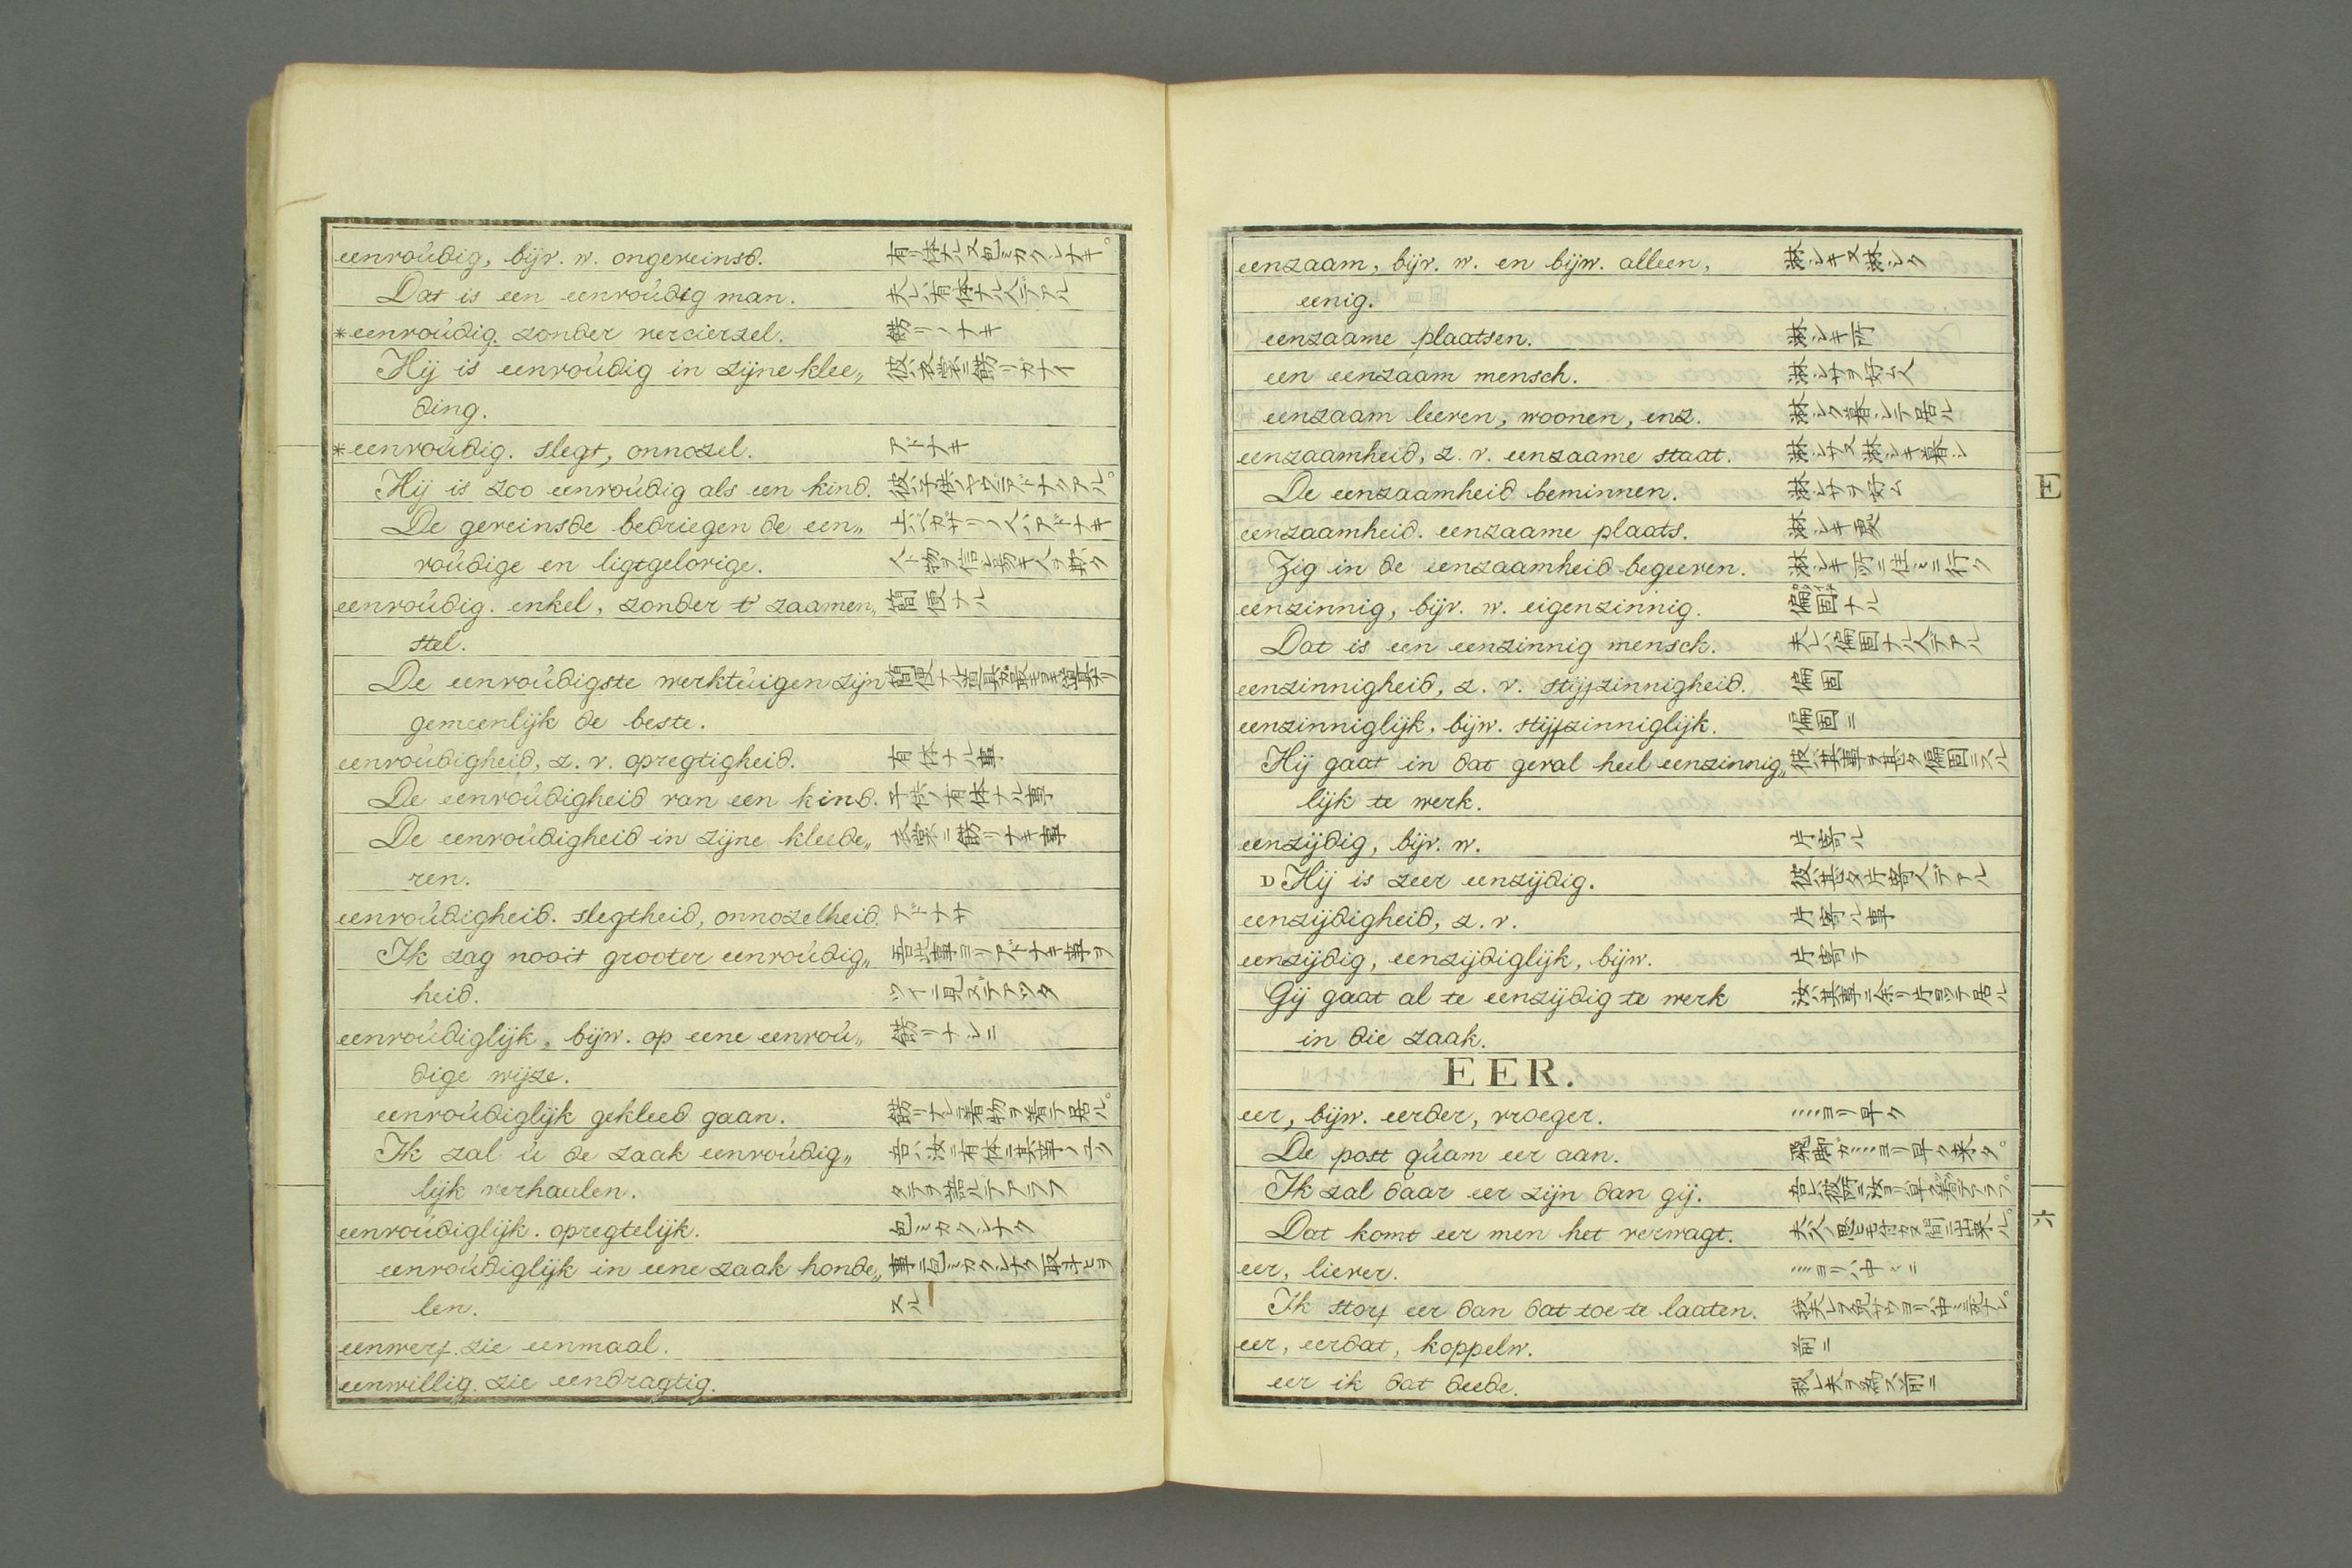 eenvoúdig, bijv. w. ongeveinsd. 有体ナル又包ミカクシナキ。
Dat is een eenvoúdig man. 夫レハ有体ナル人デアル
*eenvoúdig. zonder vercierzel. 餝リノナキ
Hij is eenvoúdig in zijne klee„ 彼ハ衣裳ニ餝リガナイ
ding.
*eenvoúdig. slegt, onnozel. アドナキ
Hij is zoo eenvoúdig als een kind. 彼ハ子供ノヤウニアドナクアル。
De geveinsde bedriegen de een„
voúdige en ligtgelovige. 人ト物ヲ信シ易キ人ヲ欺ク
eenvoúdig. enkel, zonder t' zaamen„ 簡便ナル
stel.
De eenvoúdigste werktúigen zijn
gemeenlijk de beste.
eenvoúdigheid, z. v. opregtigheid. 有体ナル事
De eenvoúdigheid van een kind. 子供ノ有体ナル事
De eenvoúdigheid in zijne kleede„ 衣裳ニ餝リナキ事
ren.
eenvoúdigheid. slegtheid, onnozelheid. アドナサ
Ik zag nooit grooter eenvoúdig„ 吾此事ヨリアドナキ事ヲ
heid. ツイニ見ズデアツタ
eenvoúdiglijk, bijw. op eene eenvoú„ 餝リナシニ
dige wijze.
eenvoúdiglijk gekleed gaan. 餝リナシニ着物ヲ着テ居ル。
Ik zal ú de zaak eenvoúdig„ 吾ハ汝ニ有体ニ其事ノ
lijk verhaelen.
eenvoúdiglijk. opregtelijk. 包ミカクシナク
eenvoúdiglijk in eene zaak hande„ 事ニ包ミカクシナク取
len. スル
eenwerf. zie eenmaal.
eenwillig. zie eendragtig.
eenzaam, bijv. w. en bijw. alleen, 淋シキ又淋シク
eenig.
eenzaame plaatsen. 淋シキ所
een eenzaam mensch. 淋シサヲ好ム人
eenzaam leeven, woonen, enz. 淋シク暮シテ居ル
eenzaamheid, z. v. eenzaame staat. 淋シサ又淋シキ暮シ
De eenzaamheid beminnen. 淋シサヲ好ム
eenzaamheid. eenzaame plaats. 淋シキ処
Zig in de eenzaamheid begeeven. 淋シキ所ニ住ミニ行ク
eenzinnig, bijv. w. eigenzinnig. 偏固ナル
Dat is een eenzinnig mensch. 夫レハ偏固ナル人デアル
eenzinnigheid, z. v. stijfzinnigheid. 偏固
eenzinniglijk, bijw. stijfzinniglijk. 偏固ニ
Hij gaat in dat geval heel eenzinnig„ 彼ハ其事ヲ甚タ偏固ニスル
lijk te werk.
eenzijdig, bijv. w. 片寄ル
D Hij is zeer eenzijdig. 彼ハ甚タ片寄人デアル
eenzijdigheid, z. v. 片寄ル事
eenzijdig, eenzijdiglijk, bijw. 片寄テ
Gij gaat al te eenzijdig te werk 汝ハ其事ニ余リ片寄ツテ居ル
in die zaak.
EER.
E
六
eer, bijw. eerder, vroeger. ……ヨリ早ク
De post qúam eer aan. 飛脚ガ……ヨリ早ク来タ。
Ik zal daar eer zijn dan gij.
Dat komt eer men het verwagt.
eer, liever.
Ik storf eer dan dat toe te laaten.
eer, eerdat, koppelw. 前ニ
eer ik dat deede. 我レ夫ヲ為ス前ニ